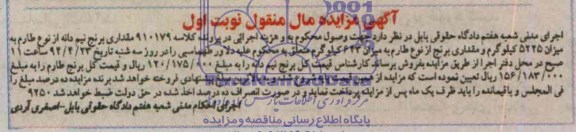 آگهی مزایده مال منقول نوبت اول
اجرای مدنی شعبه هفتم دادگاه حقوقی بابل در نظر دارد جهت وصول محکوم به و هزینه اجرائی در پرونده کلاسه ۹۱۰۱۷۹ مقداری برنج نیم دانه از نوع طارم به
میزان ۵۲۲۵ کیلوگرم و مقداری برنج از نوع طارم به میزان ۶۲۳ کیلوگرم متعلق به محکوم علیه دلاور طهماسبی را در روز سه شنبه تاریخ ۹۴/۲/۲۲ ساعت ۱۱
صبح در محل دفتر اجرا از طریق مزایده بفروش برساند کارشناس قیمت کل برنج نیم دانه را به مبلغ ۱۲۰/۱۷۵/۰۰۰ ریال و قیمت کل برنج طارم را به مبلغ
۱۵۶/۱۸۳/۰۰۰ ریال تعیین نموده است که مزایده از شروع و به پیشنهادی فروخته خواهد شد برنده مزایده ده درصد مبلغ را
فی المجلس و باقیمانده را باید ظرف یک ماه پس از مزایده پرداخت نماید و در صورت انصراف ده درصد اخذ شده در حق دولت ضبط خواهد شد ۹۲۵۰
اجرای احکام مدنی شعبه هفتم دادگاه حقوقی بابل - اصغری آردی
پایگاه اطلاع رسانی مناقصه و مزایده